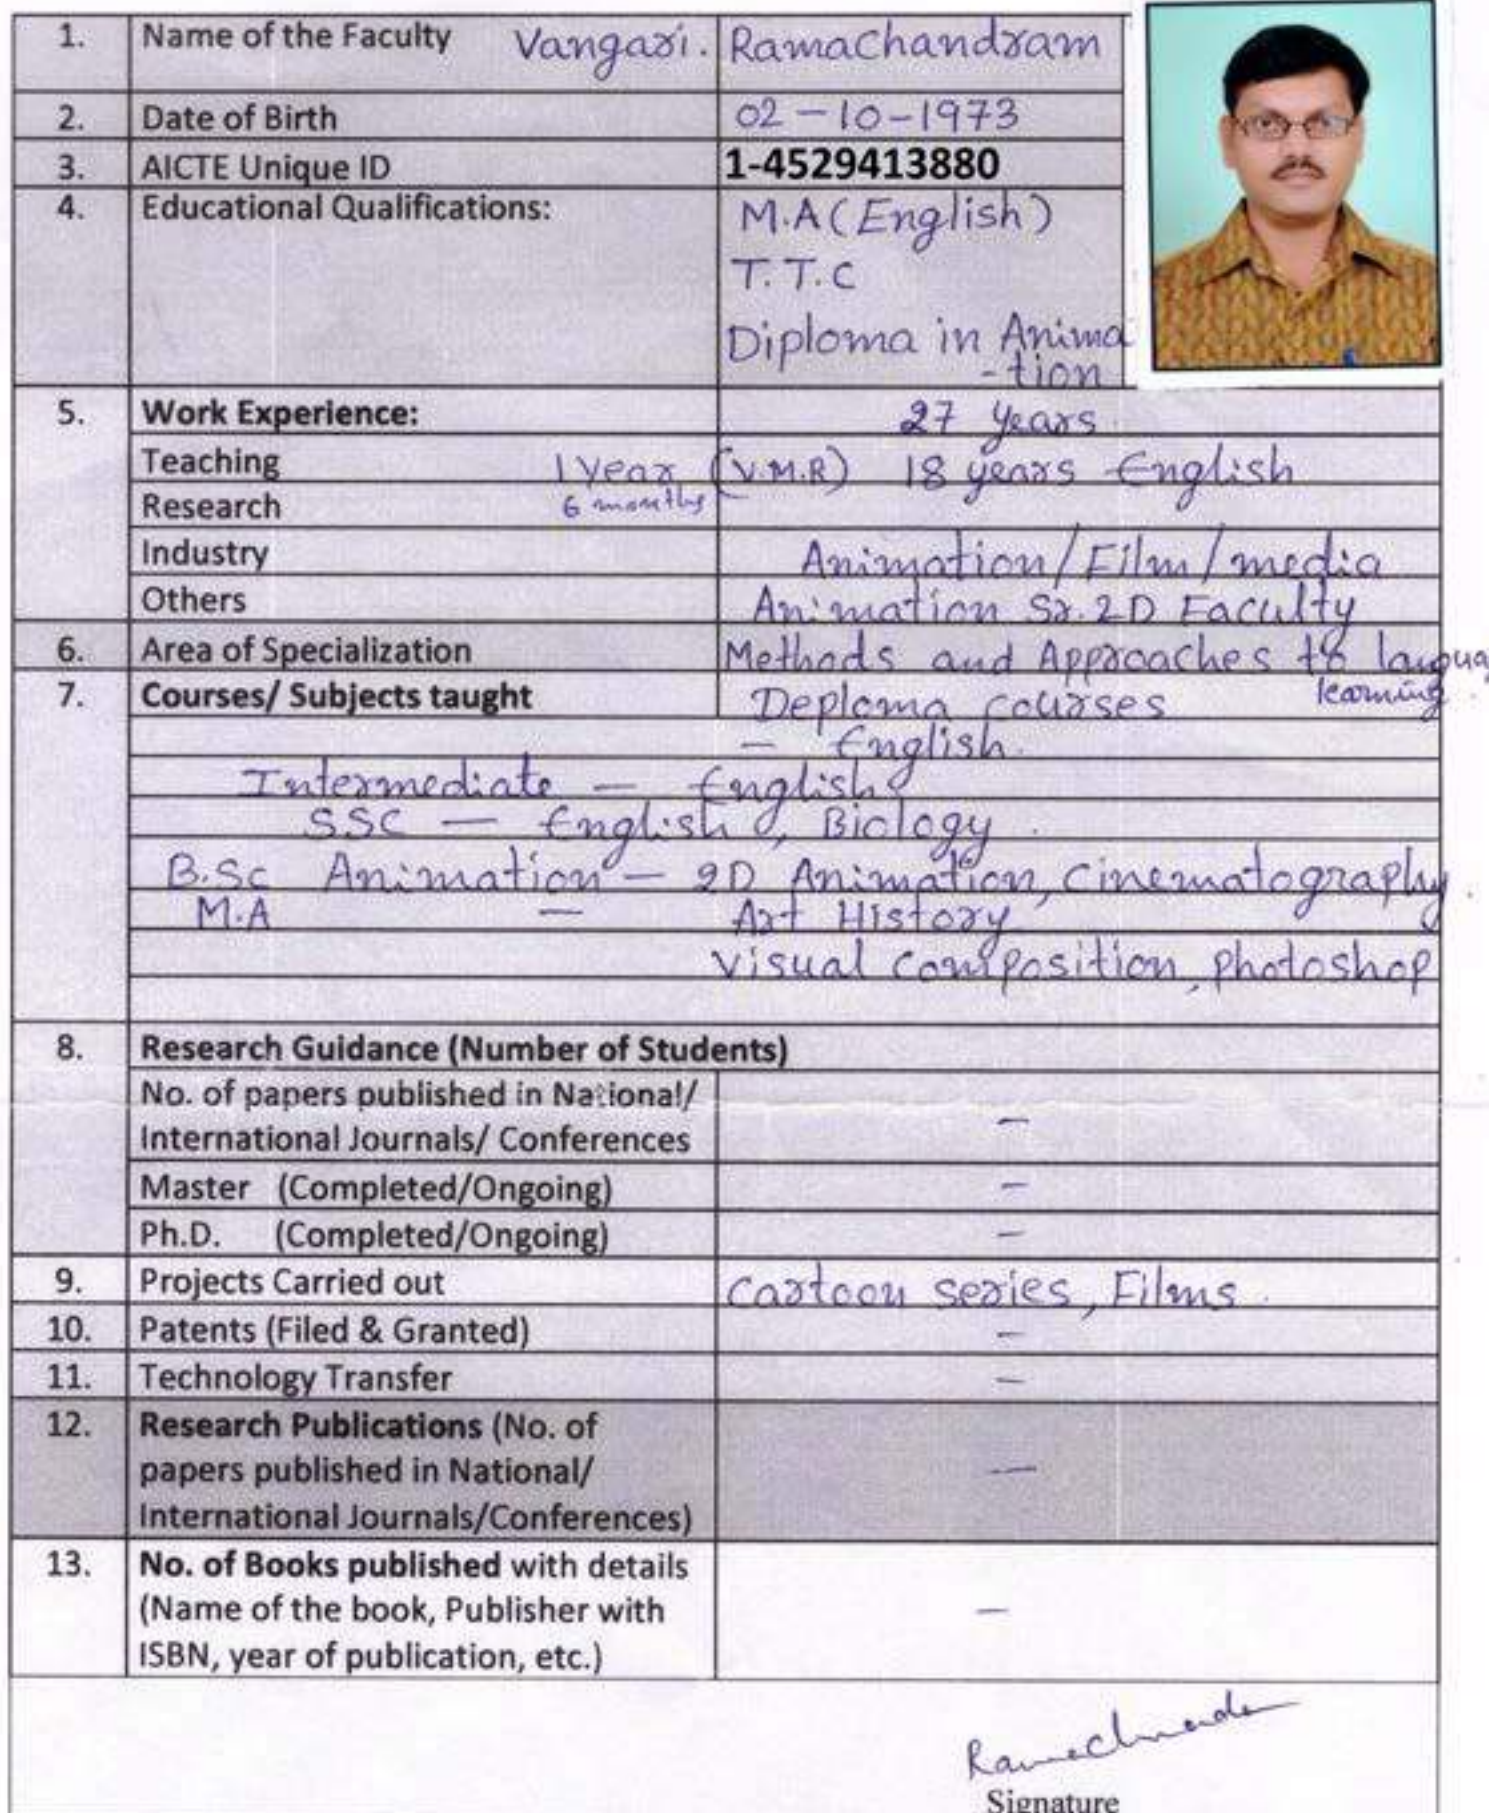 1. Name of the Faculty Vangari. Ramachandram
2. Date of Birth 02-10-1973
3. AICTE Unique ID 1-4529413880
4. Educational Qualifications: M.A (English)
T.T.C
Diploma in Anima
-tion
5. Work Experience: 27 years
Teaching 1 year (V.M.R) 18 years English
6 months
Research
Industry Animation/Film/media
Others Animation Sr. 2D Faculty
6. Area of Specialization Methods and Approaches to langua
learning.
7. Courses/ Subjects taught Deploma courses
- English.
Intermediate - English
SSC - English, Biology.
B.Sc Animation - 2D Animation, Cinematography.
M.A - Art History
Visual Composition, photoshop
8. Research Guidance (Number of Students)
No. of papers published in National/
International Journals/ Conferences -
Master (Completed/Ongoing) -
Ph.D. (Completed/Ongoing) -
9. Projects Carried out Cartoon series, Films.
10. Patents (Filed & Granted) -
11. Technology Transfer -
12. Research Publications (No. of
papers published in National/ -
International Journals/Conferences)
13. No. of Books published with details
(Name of the book, Publisher with -
ISBN, year of publication, etc.)
Signature